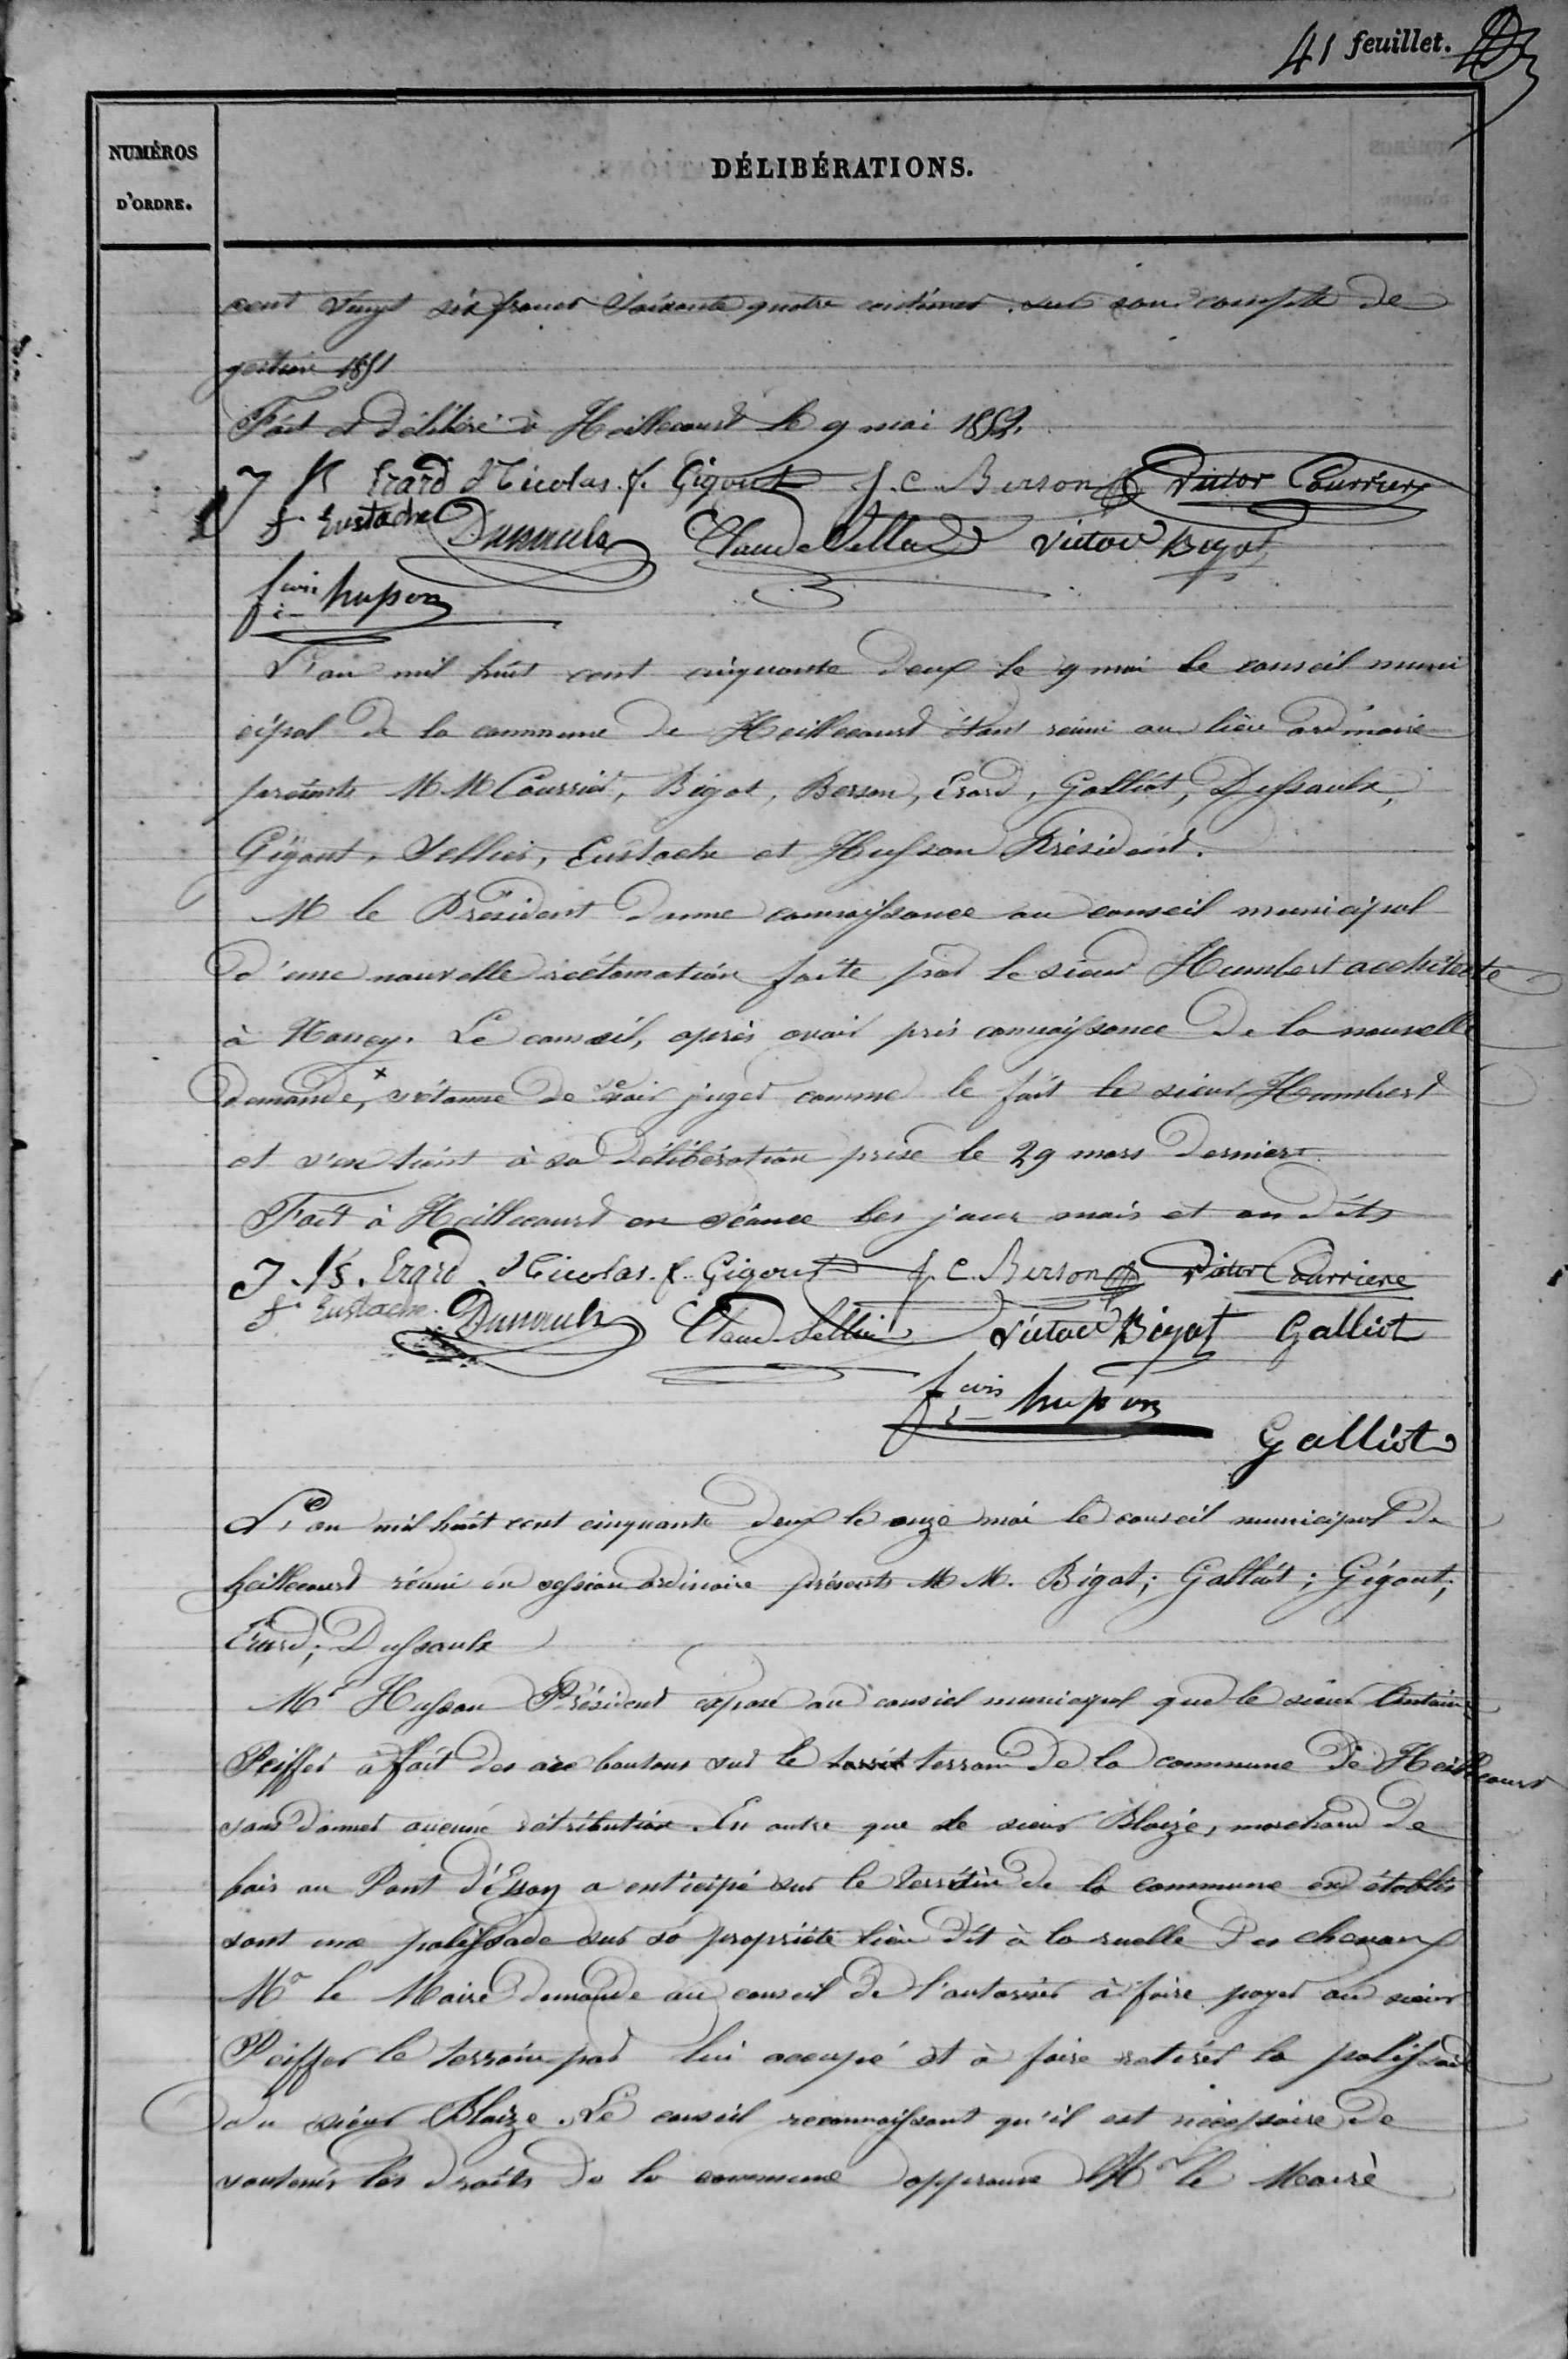 41 feuillet.
NUMÉROS
D'ORDRE.
DÉLIBÉRATIONS.
cent vingt six francs soixante quatre centimes sur son compte de
gestion 1851
Fait et délibéré à Heillecourt le 9 mai 1852.
J B Erard Nicolas f. Gigout J. C. Berson Victor Courrier
f. Eustache Dussaulx Claude Sellier Victor Bigot
fcois husson
L'an mil huit cent cinquante deux le 9 mai le conseil muni
cipal de la commune de Heillecourt étant réuni au lieu ordinaire
présents M.M Courrier, Bigot, Berson, Erard, Galliot, Dussaulx,
Gigout, Sellier, Eustache et Husson Président.
M le Président donne connaissance au conseil municipal
d'une nouvelle réclamation faite par le sieur Humbert architecte
à Nancy. Le conseil, après avoir pris connaissance de la nouvelle
demande, s'étonne de se voir juger comme le fait le sieur Humbert
et s'en tient à sa délibération prise le 29 mars dernier.
Fait à Heillecourt en séance les jour mois et an dits
J. B. Erard Nicolas. f. Gigout J. C. Berson Victor Courriere
f Eustache. Dussaulx Claude Sellier Victor Bigot Galliot
fcois husson
Galliot
L'an mil huit cent cinquante deux le onze mai le conseil municipal de
heillecourt réuni en session ordinaire présents M M. Bigot; Galliot; Gigout;
Erard; Dussaulx
Mr Husson Président expose au conseil municipal que le sieur Antoine
Peiffer a fait des arc boutans sur le terrain de la commune de Heillecourt
sans donner aucune rétribution. En outre que le sieur Blaize, marchand de
bois au Pont d'Essey a anticipé sur le terrain de la commune en établis
sant une palissade sur sa propriété lieu dit à la ruelle des chenaux
Mr le Maire demande au conseil de l'autoriser à faire payer au sieur
Peiffer le terrain par lui occupé et à faire retirer la palissade
du sieur Blaize. Le conseil reconnaissant qu'il est nécessaire de
soutenir les droits de la commune approuve Mr le Maire